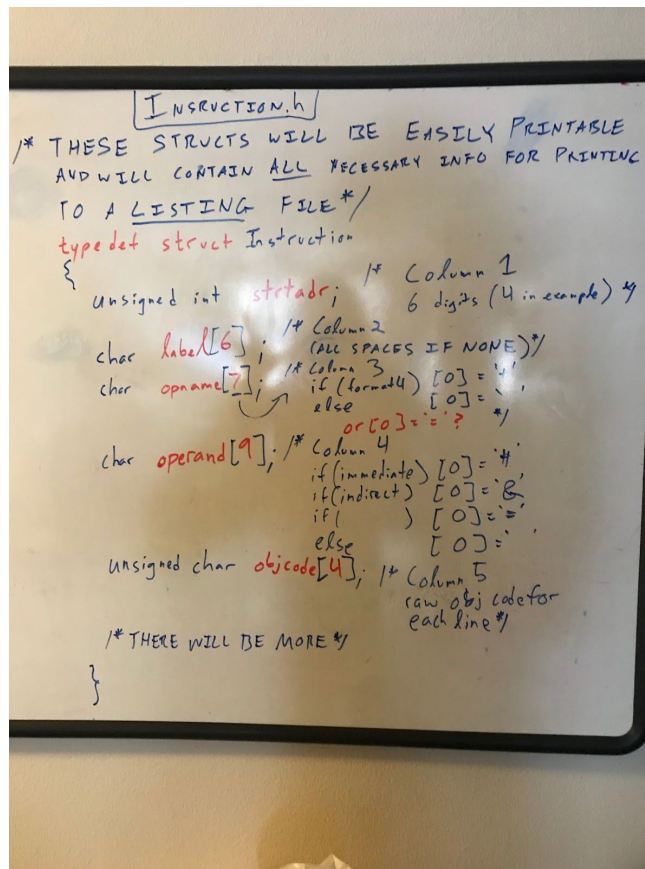 INSRUCTION.h
/* THESE STRUCTS WILL BE EASILY PRINTABLE
AND WILL CONTAIN ALL NECESSARY INFO FOR PRINTING
TO A LISTING FILE */
typedef struct Instruction
{
unsigned int strtadr; /* Column 1
6 digits (4 in example) */
char label[6]; /* Column 2
(ALL SPACES IF NONE) */
char opname[7]; /* Column 3
if (format4) [0] = '+'
else [0] = ' '
or [0] = '=' ? */
char operand[9]; /* Column 4
if (immediate) [0] = '#'
if (indirect) [0] = '&
if ( ) [0] = '='
else [0] = '
unsigned char objcode[4]; /* Column 5
raw obj code for
each line */
/* THERE WILL BE MORE */
}